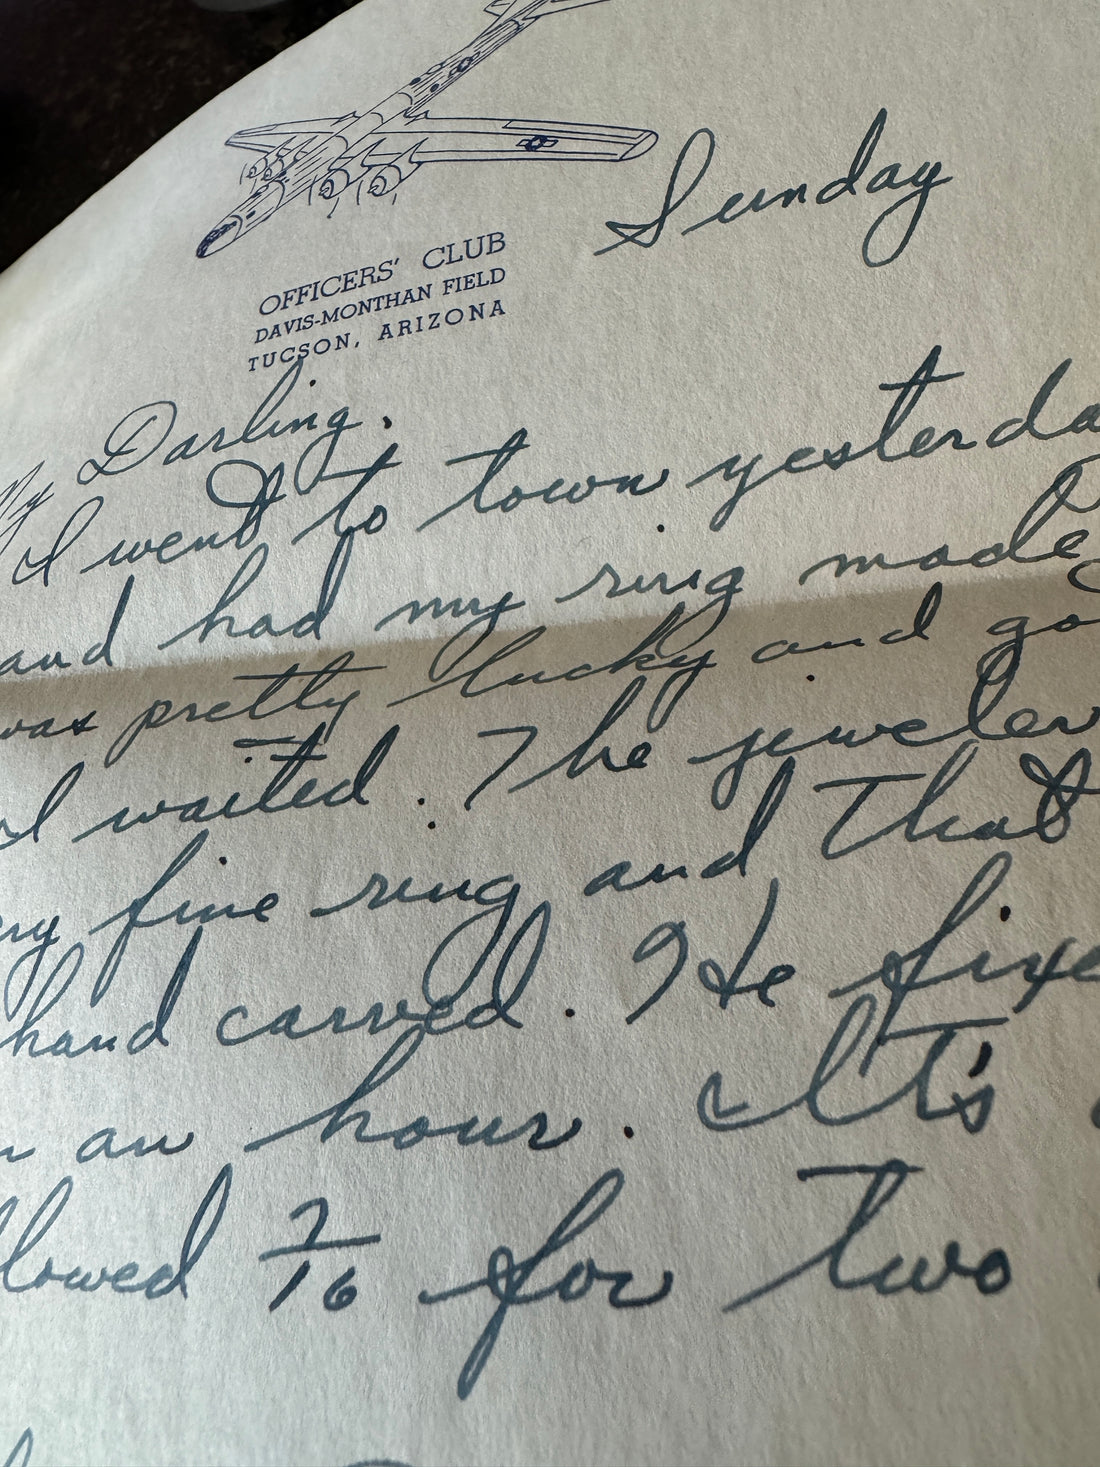 Sunday
OFFICERS' CLUB
DAVIS-MONTHAN FIELD
TUCSON, ARIZONA
My Darling.
I went to town yesterda
and had my ring made
was pretty lucky and go
I waited. The jeweler
ry fine ring and that
hand carved. He fixe
n an hour. It's
lowed 7/16 for two